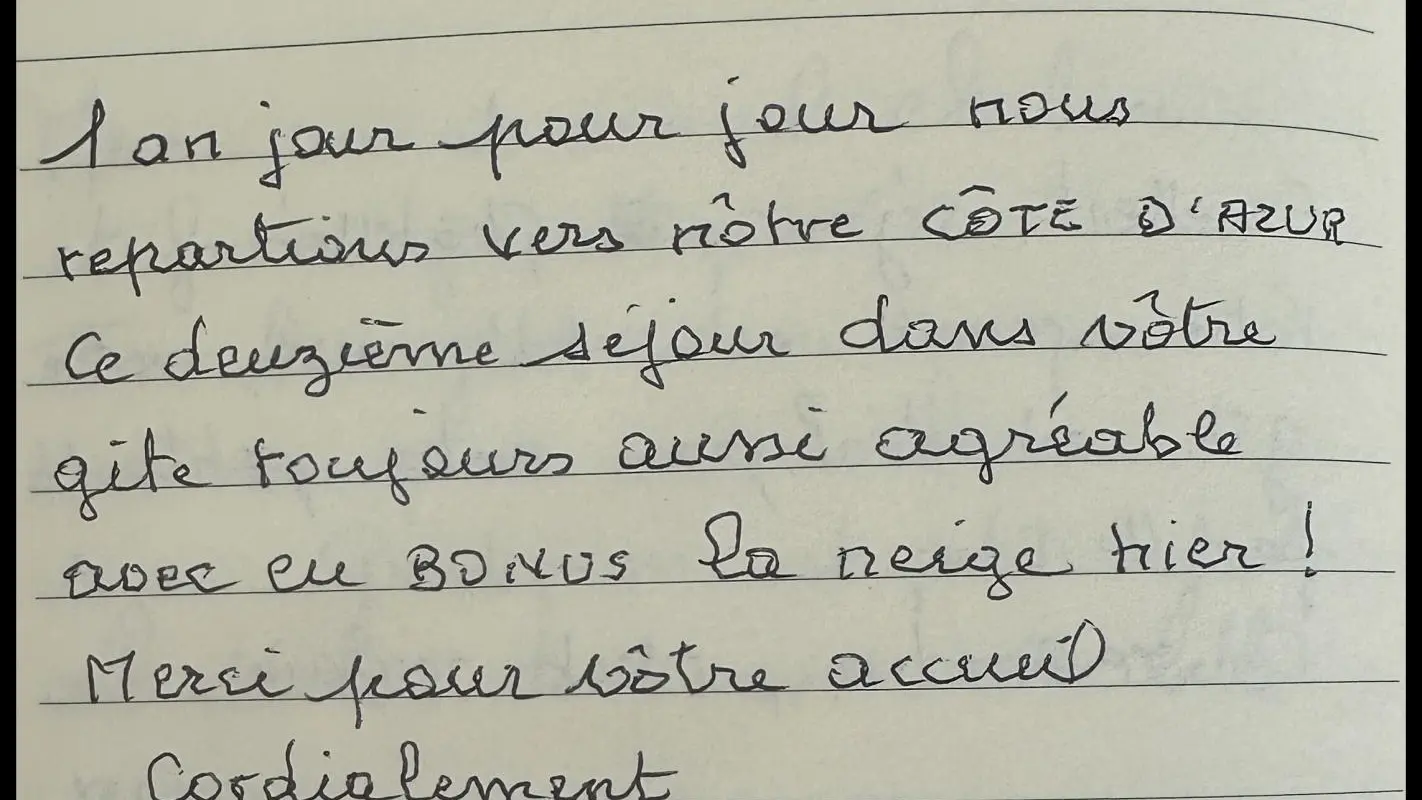 1 an jour pour jour nous
repartions vers nôtre CÔTE D'AZUR
Ce deuzième séjour dans vôtre
gite toujours aussi agréable
avec en BONUS la neige hier !
Merci pour vôtre accueil
Cordialement